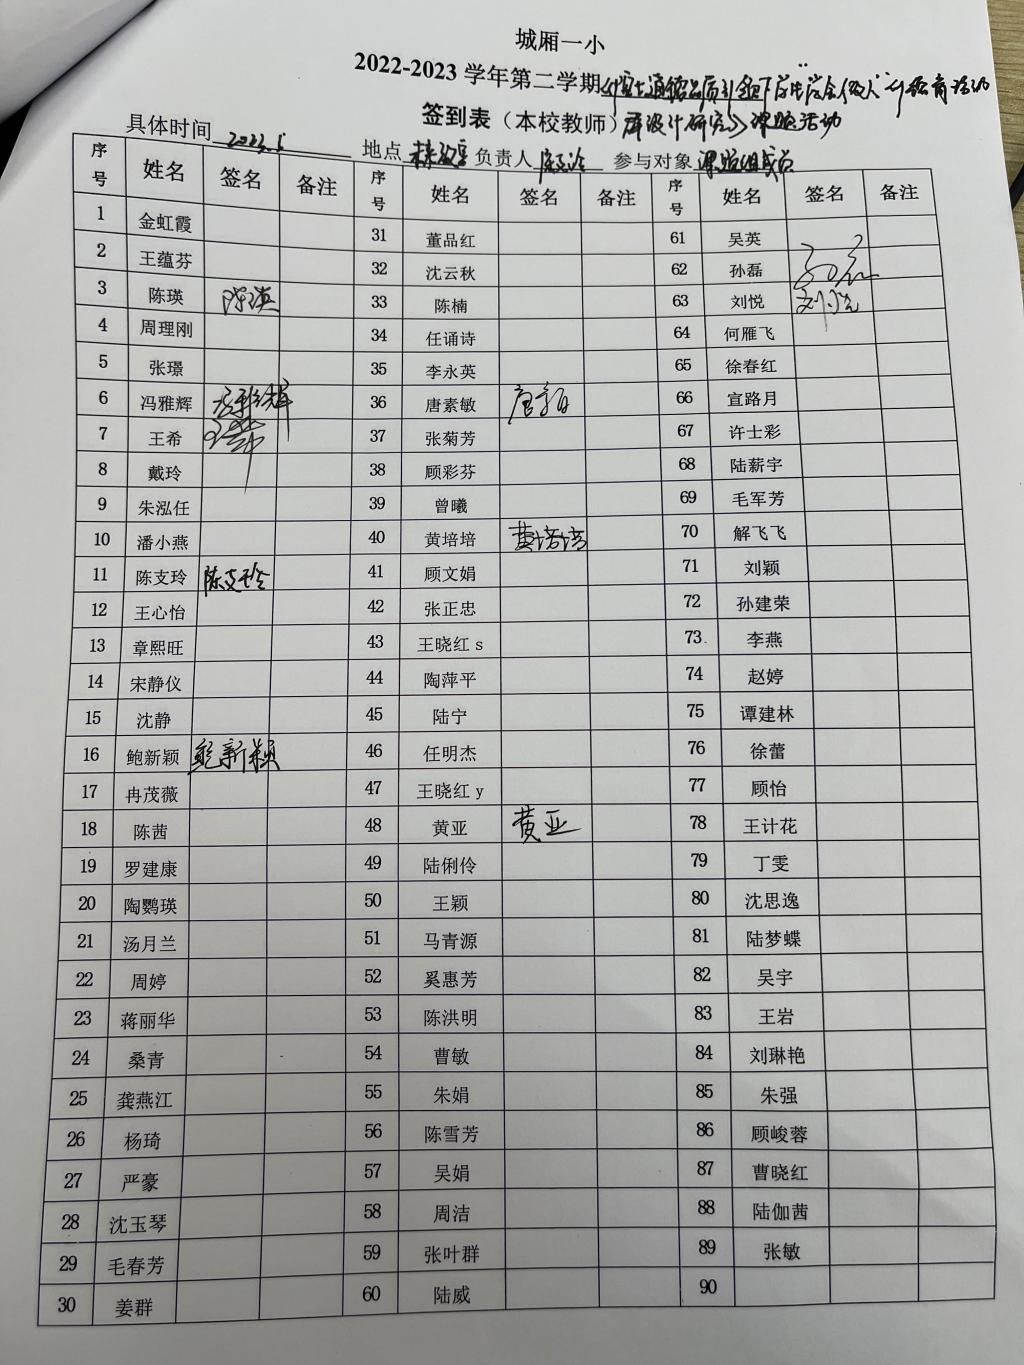 城厢一小
2022-2023 学年第二学期 德品质引领下学生"学会做人" 教育活动
签到表（本校教师）库设计研究》课题活动
具体时间 2023.5 地点 负责人 参与对象 课题组成员
序号 姓名 签名 备注 序号 姓名 签名 备注 序号 姓名 签名 备注
1 金虹霞 31 董品红 61 吴英
2 王蕴芬 32 沈云秋 62 孙磊
3 陈瑛 陈瑛 33 陈楠 63 刘悦 刘悦
4 周理刚 34 任诵诗 64 何雁飞
5 张璟 35 李永英 65 徐春红
6 冯雅辉 冯雅辉 36 唐素敏 66 宣路月
7 王希 37 张菊芳 67 许士彩
8 戴玲 38 顾彩芬 68 陆薪宇
9 朱泓任 39 曾曦 69 毛军芳
10 潘小燕 40 黄培培 黄培培 70 解飞飞
11 陈支玲 陈支玲 41 顾文娟 71 刘颖
12 王心怡 42 张正忠 72 孙建荣
13 章熙旺 43 王晓红 s 73 李燕
14 宋静仪 44 陶萍平 74 赵婷
15 沈静 45 陆宁 75 谭建林
16 鲍新颖 鲍新颖 46 任明杰 76 徐蕾
17 冉茂薇 47 王晓红 y 77 顾怡
18 陈茜 48 黄亚 黄亚 78 王计花
19 罗建康 49 陆俐伶 79 丁雯
20 陶鹦瑛 50 王颖 80 沈思逸
21 汤月兰 51 马青源 81 陆梦蝶
22 周婷 52 奚惠芳 82 吴宇
23 蒋丽华 53 陈洪明 83 王岩
24 桑青 54 曹敏 84 刘琳艳
25 龚燕江 55 朱娟 85 朱强
26 杨琦 56 陈雪芳 86 顾峻蓉
27 严豪 57 吴娟 87 曹晓红
28 沈玉琴 58 周洁 88 陆伽茜
29 毛春芳 59 张叶群 89 张敏
30 姜群 60 陆威 90